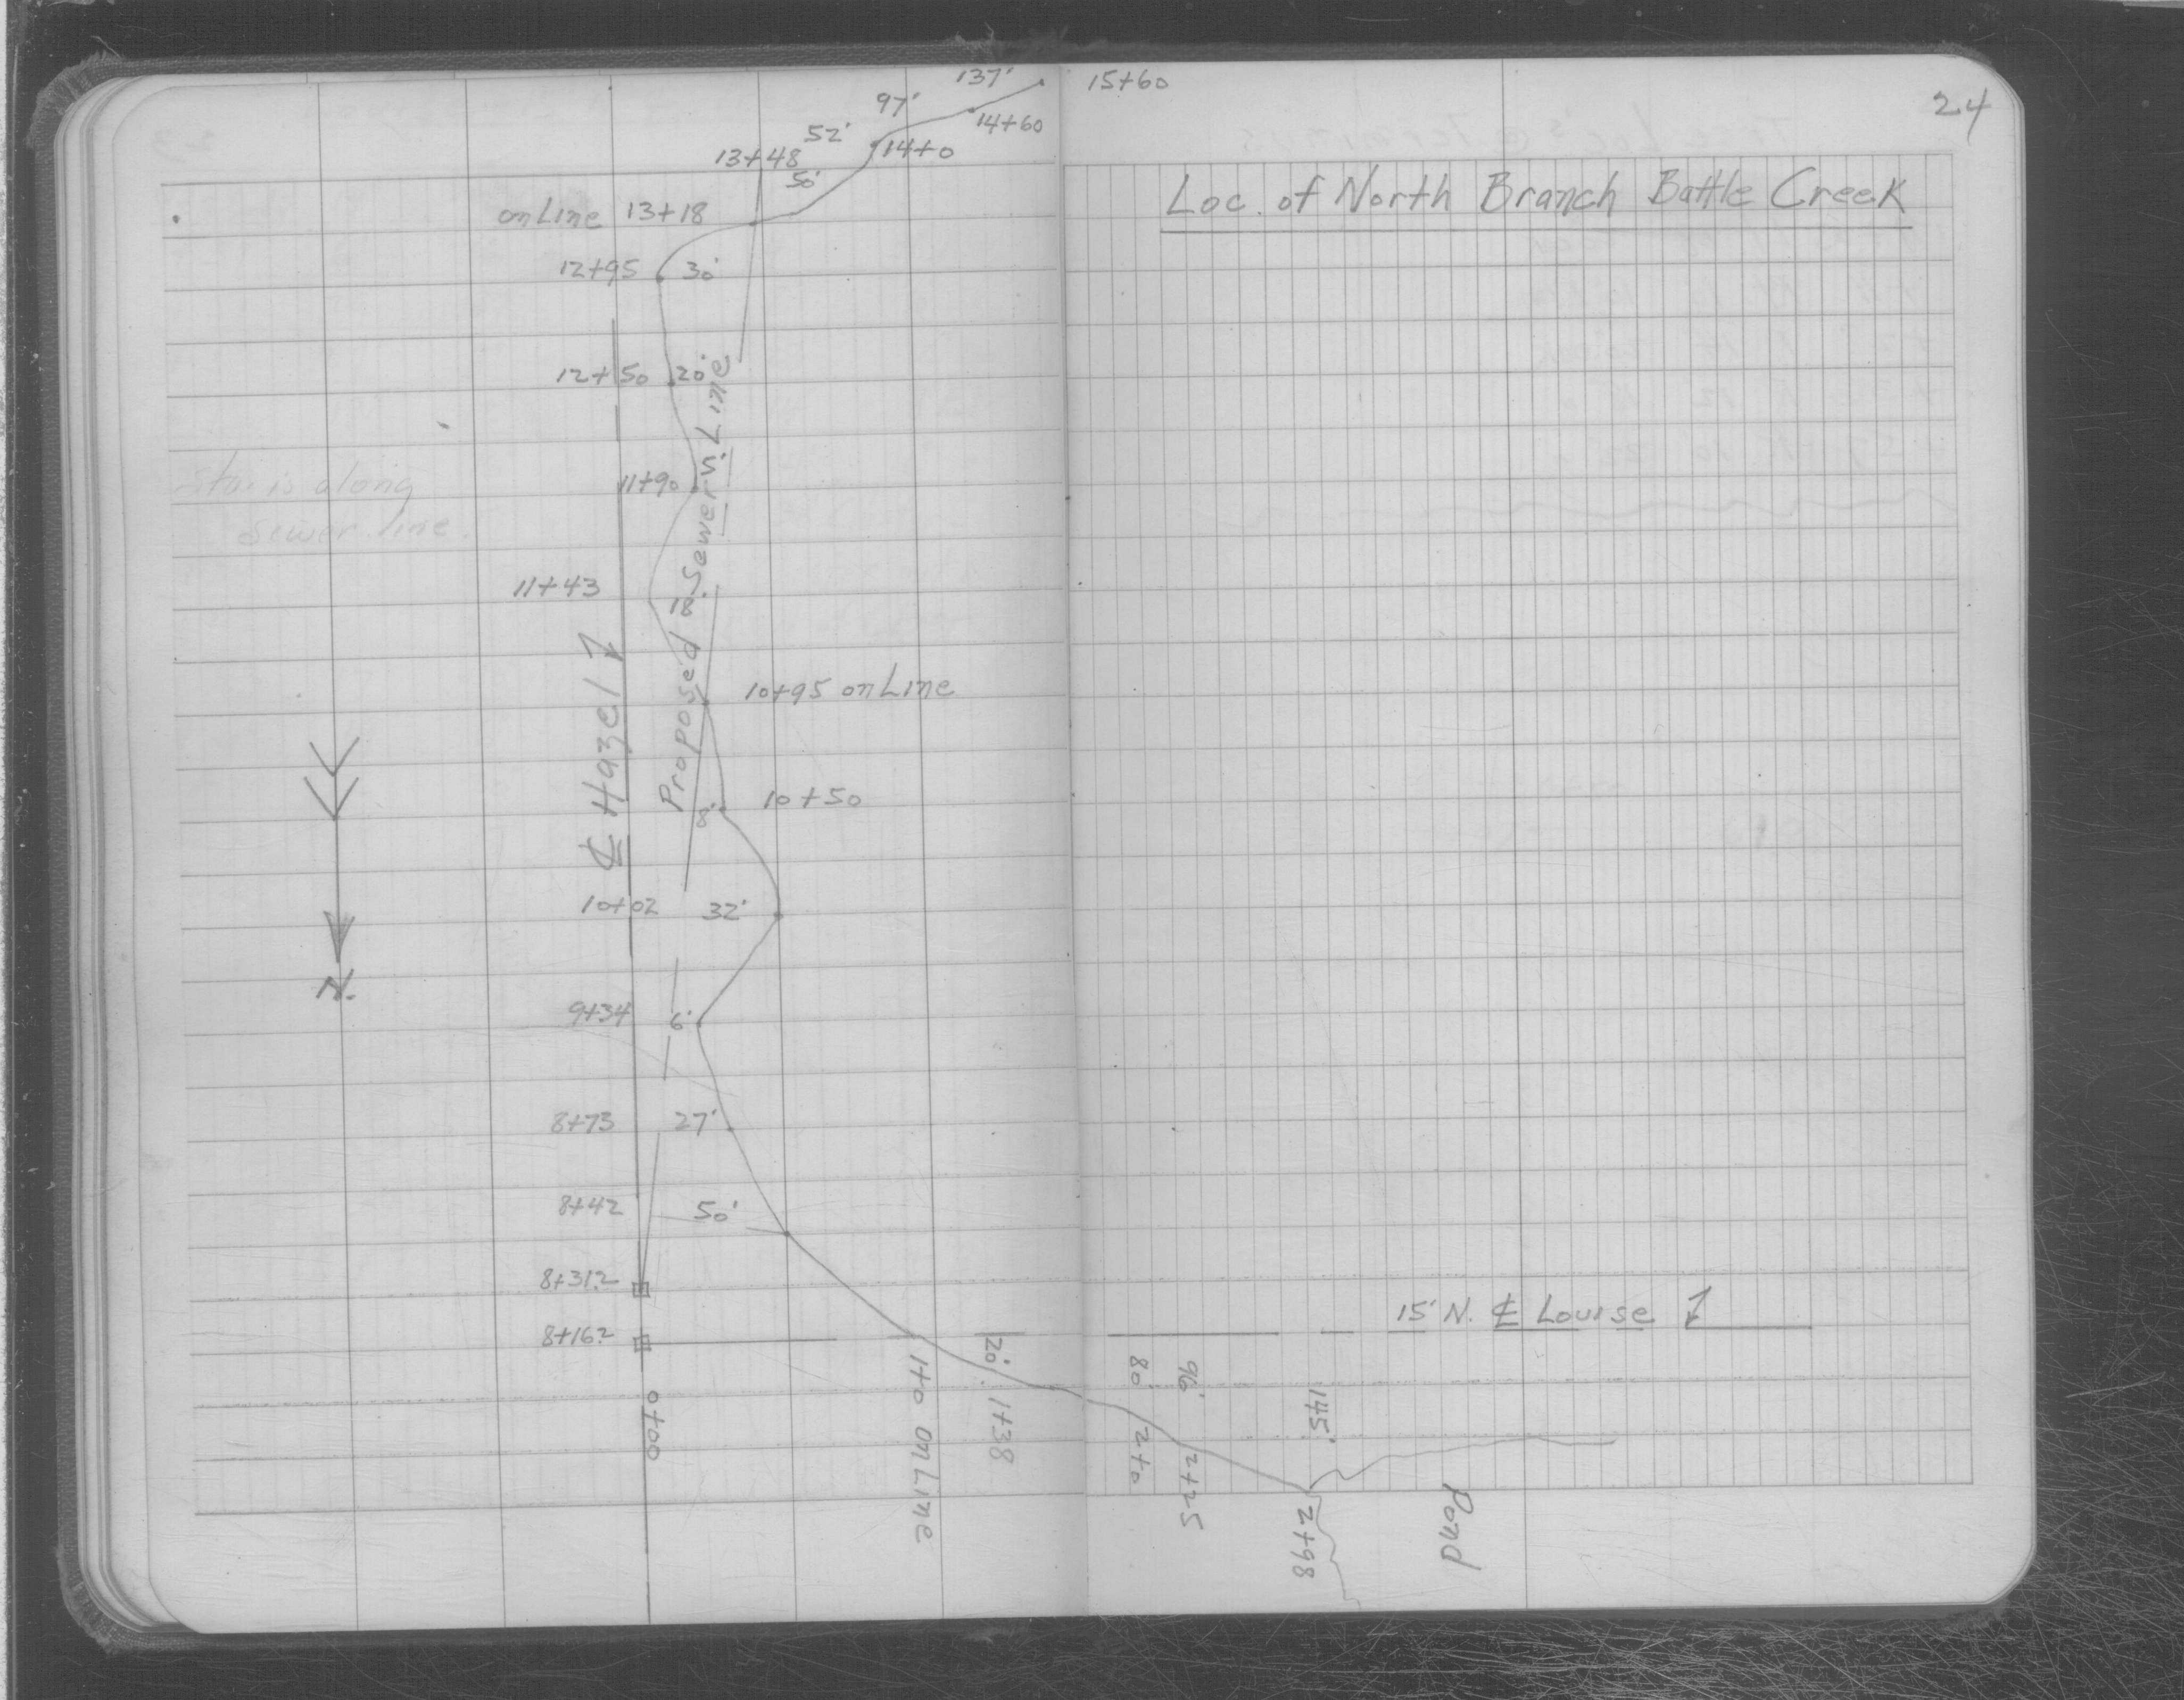 24
137' 15+60
97' 14+60
52' 14+0
13+48
50'
Loc. of North Branch Battle Creek
on Line 13+18
12+95 30'
12+50 20'
11+90
Sta. is along
sewer line.
11+43 18'
Proposed Sewer Line
℄ Hazel
10+95 on Line
8' 10+50
10+02 32'
N.
9+34 6'
8+73 27'
8+42 50'
8+31.2
15' N. ℄ Lourse
8+16.2
0+00
1+0 on Line
20' 1+38
80' 2+0
96' 2+25
145' 2+98
Pond